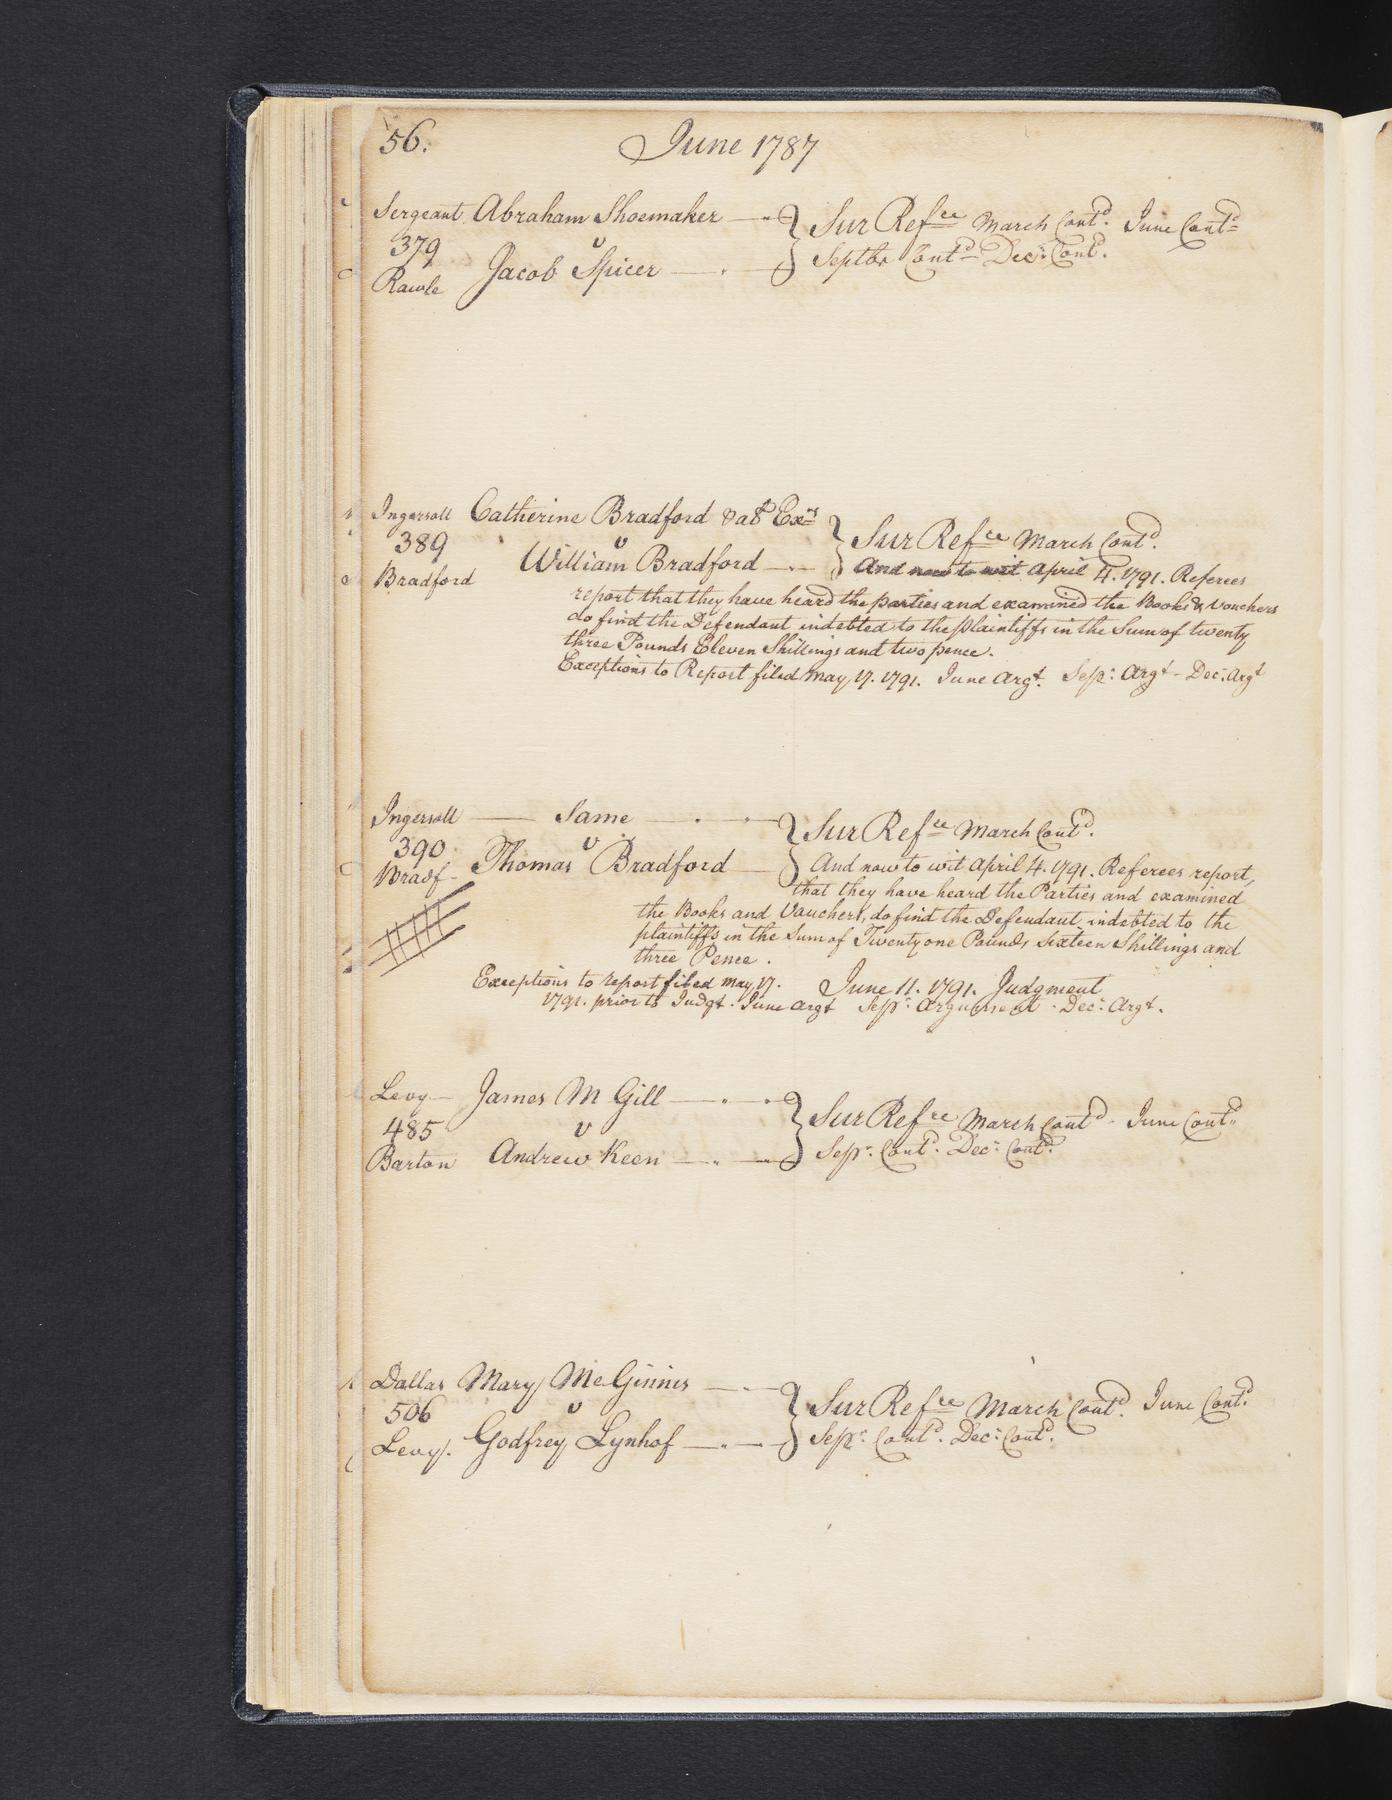 56. June 1787
Sergeant Abraham Shoemaker } Sur Refce March Contd. June Contd
379 v Septbr Contd Decr. Contd.
Rawle Jacob Spicer
Ingersoll Catherine Bradford & als Exrs } Sur Refce March Contd.
389 v
Bradford William Bradford And now to wit April 4. 1791. Referees
report that they have heard the parties and examined the Books & Vouchers
do find the Defendant indebted to the plaintiffs in the Sum of twenty
three Pounds Eleven Shillings and two pence.
Exceptions to Report filed May 17. 1791. June Argt. Sepr. Argt - Decr. Argt
Ingersoll Same } Sur Refce March Contd.
390 v
Bradf- Thomas Bradford And now to wit April 4. 1791. Referees report,
that they have heard the Parties and examined
the Books and Vouchers, do find the Defendant indebted to the
plaintiffs in the Sum of Twenty one Pounds Sixteen Shillings and
three Pence.
Exceptions to report filed May 17. June 11. 1791. Judgment
1791. prior to Judgt. June Argt Sepr. Argument - Decr. Argt.
Levy James M Gill } Sur Refce March Contd - June Contd
485 v
Barton Andrew Keen Sepr. Contd. Decr. Contd.
Dallas Mary McGinnis } Sur Refce March Contd. June Contd.
506 v
Levy. Godfrey Lynhof Sepr. Contd. Decr. Contd.